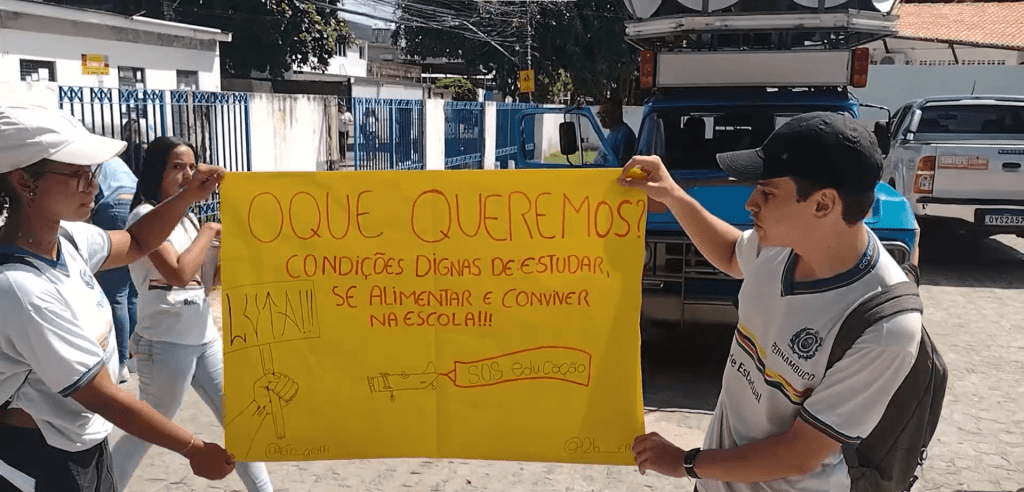 OQUE QUEREMOS?
CONDIÇÕES DIGNAS DE ESTUDAR,
SE ALIMENTAR E CONVIVER
NA ESCOLA!!!
SOS educação
PERNAMBUCO
de Estadual